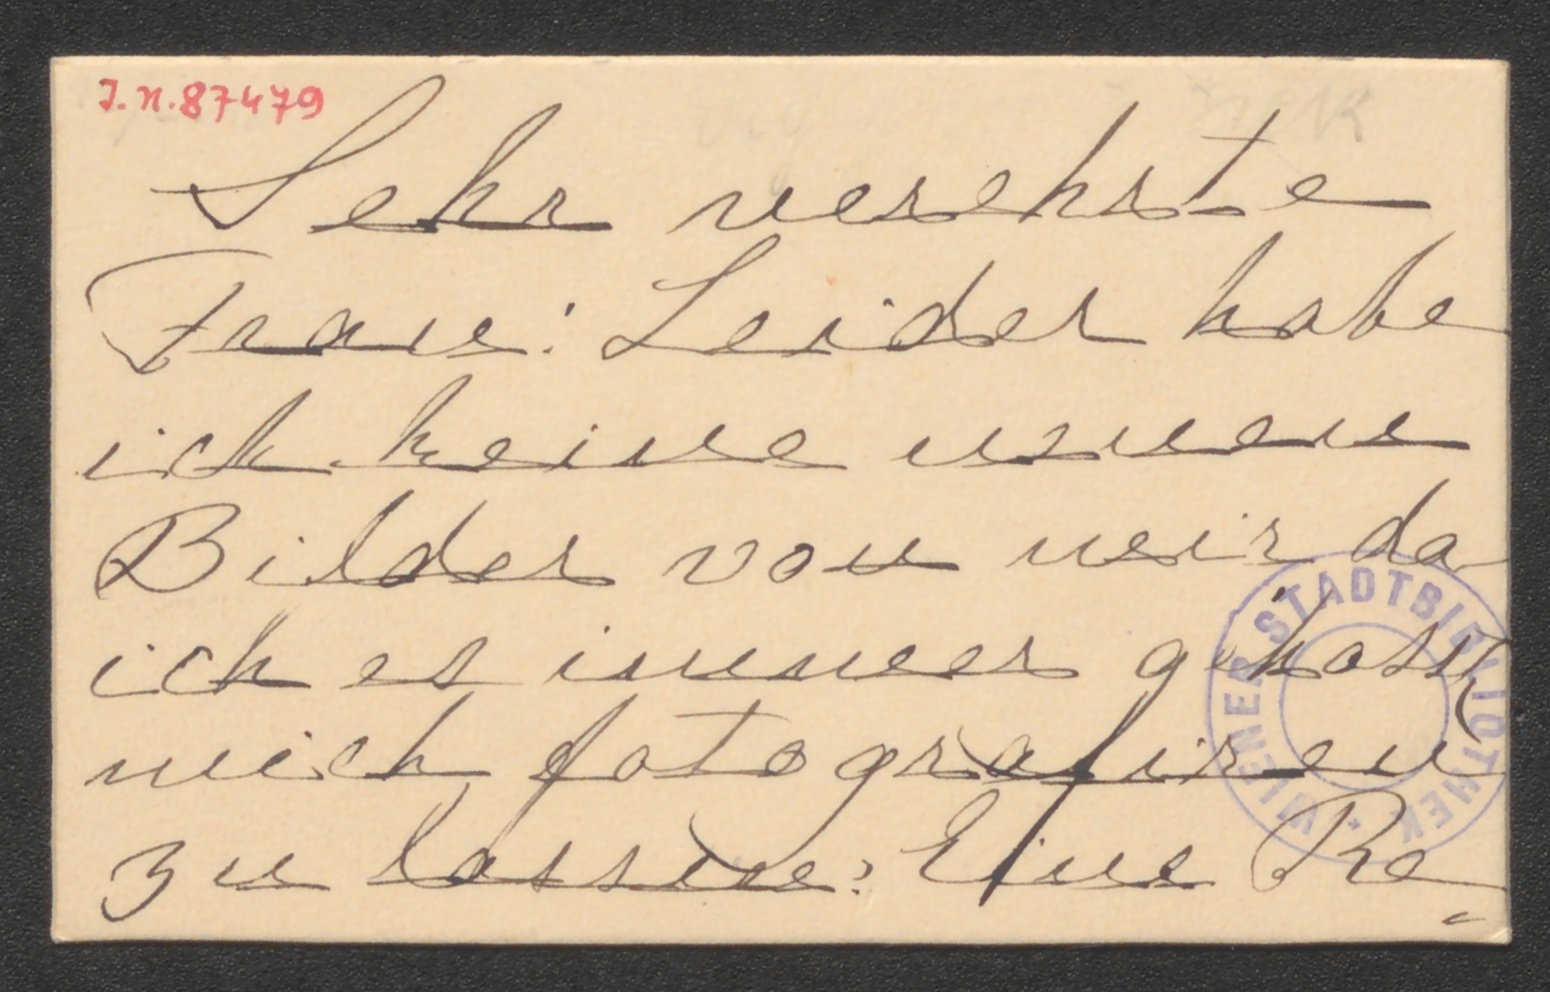 J.N.87479
Sehr verehrte
Frau! Leider habe
ich keine neuen
Bilder von mir da
ich es immer gehasst
mich fotografiren
zu lassen! Eine Re
WIENER STADTBIBLIOTHEK